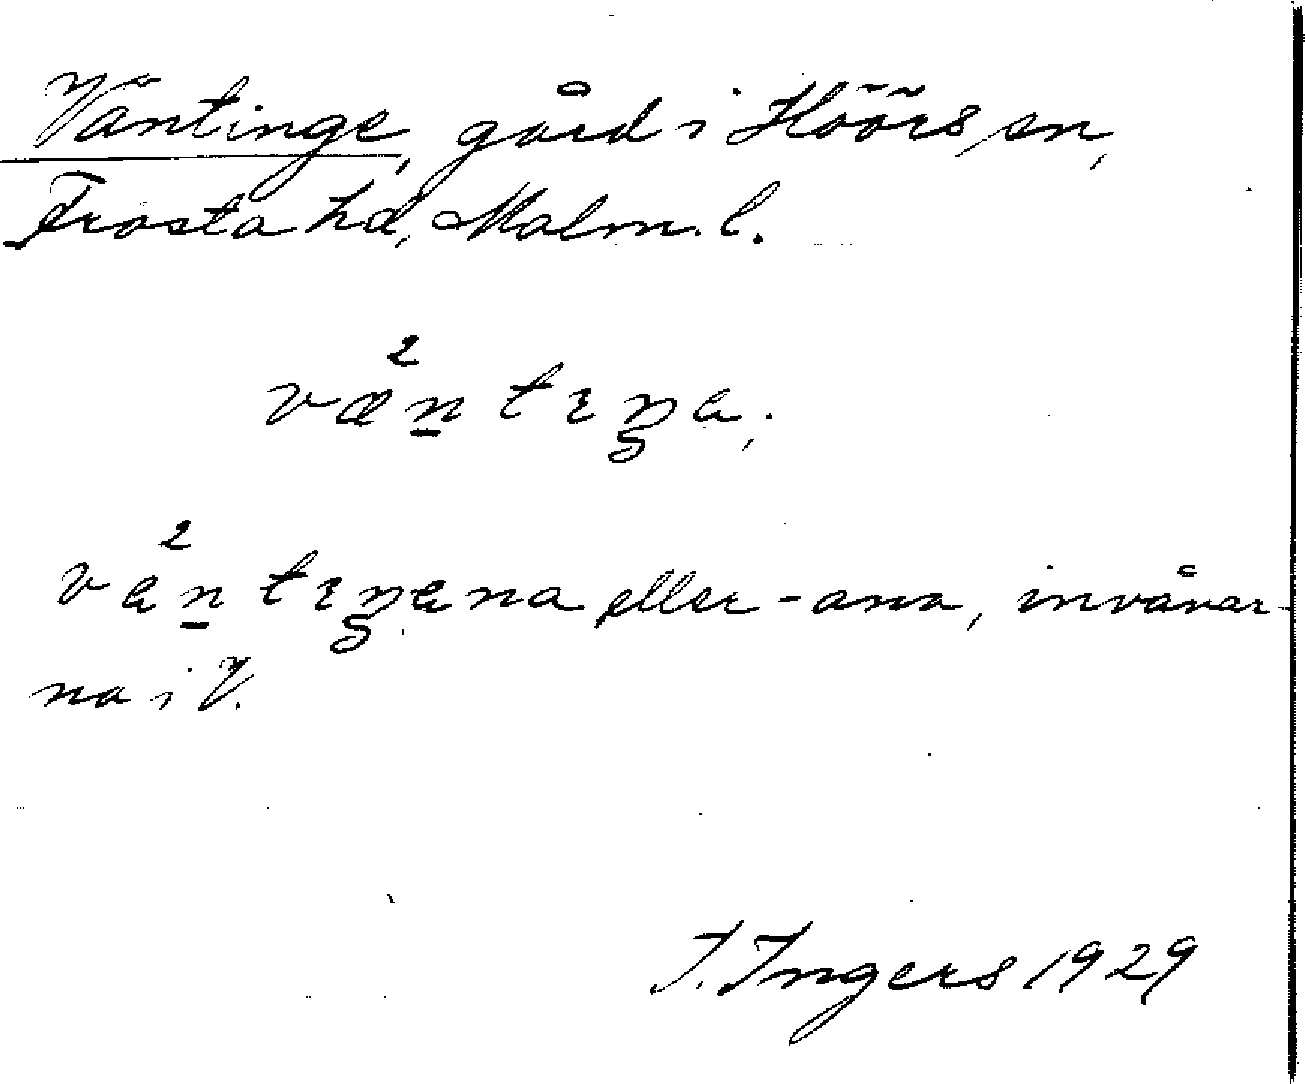 Väntinge, gård i Höörs sn,
Frosta hd, Malm. l.
væ²n̲tɪŋa,
va²n̲tɪŋana eller -ana, invånar-
na i V.
I. Ingers 1929